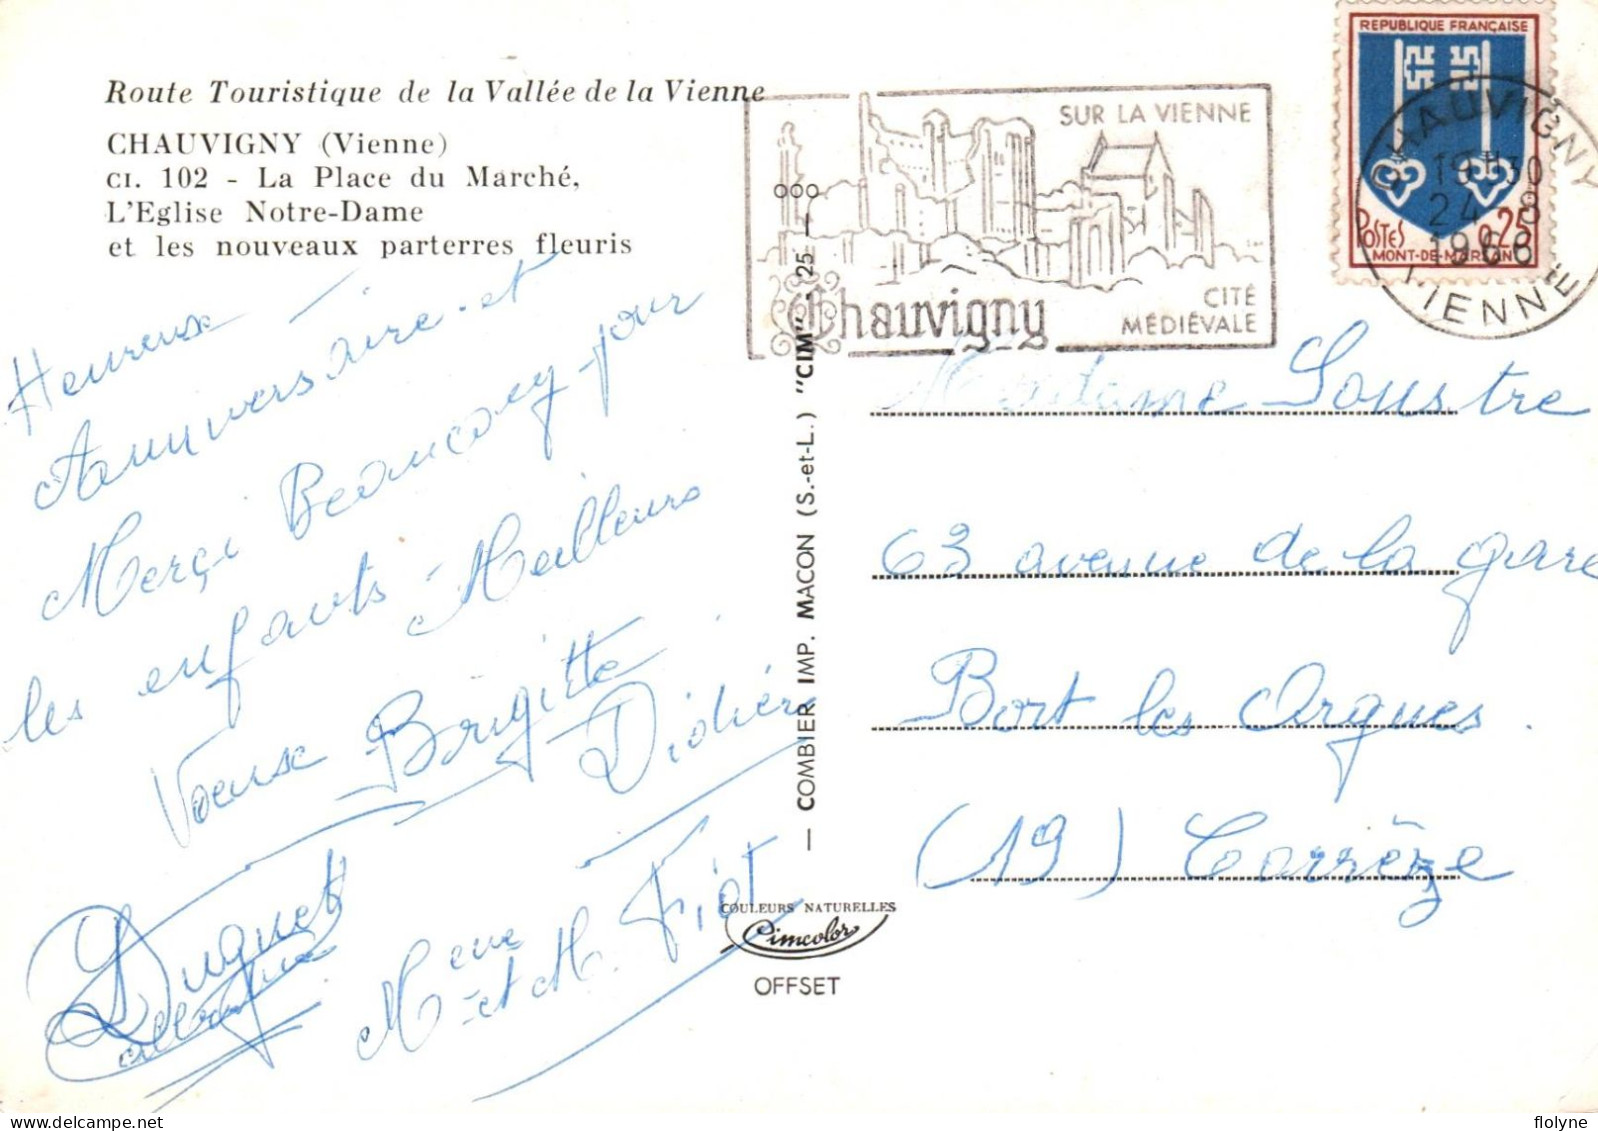 Route Touristique de la Vallée de la Vienne
CHAUVIGNY (Vienne)
CI. 102 - La Place du Marché,
L'Eglise Notre-Dame
et les nouveaux parterres fleuris
Heureux
Anniversaire et
Merçi Beaucoup pour
les enfants - Meilleurs
Brigitte
Didier
Duguet
Mme
et M. Fiot
SUR LA VIENNE
Chauvigny
CITÉ
MÉDIÉVALE
REPUBLIQUE FRANÇAISE
POSTES 0,25
MONT-DE-MARSAN
CHAUVIGNY
19H30
24 - 8
1966
VIENNE
— COMBIER IMP. MACON (S.-et-L.) "CIM" - 25 — 000
Madame Soustre
63 avenue de la gare
Bort les Orgues.
(19) Corrèze
COULEURS NATURELLES
Cimcolor
OFFSET
flolyne